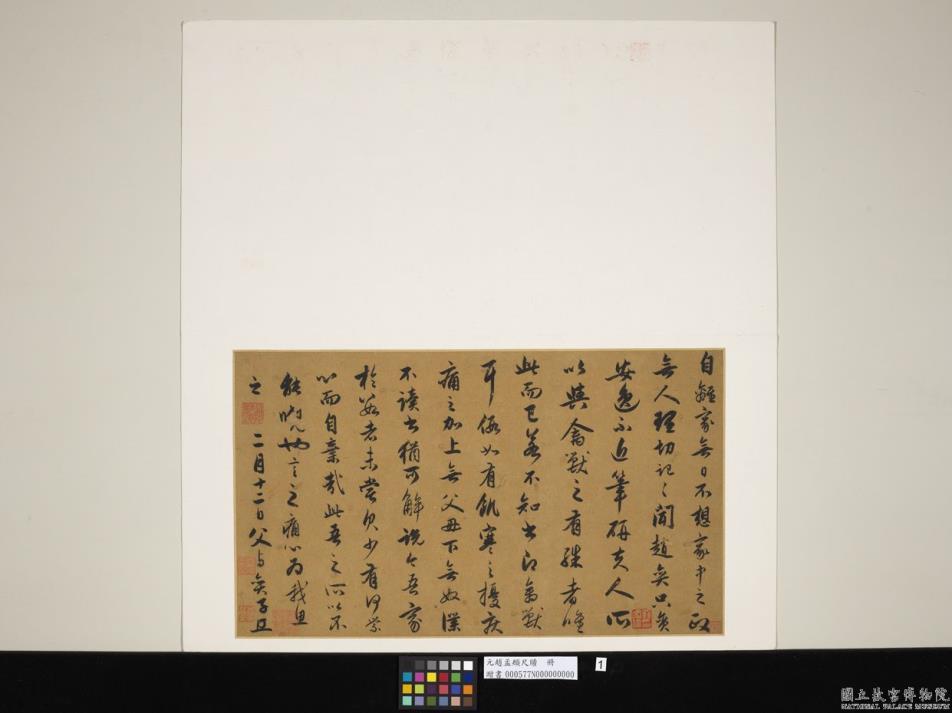 自離家無日不想家中之政
無人理切記々聞趙奕只貪
安逸不近筆研夫人所
以與禽獸之有殊者唯
此而已若不知書即禽獸
耳假如有飢寒之擾疾
痛之加上無父母下無奴僕
不讀書猶可解說今吾家
於數者未嘗欠少有何
心而自棄哉此吾之所以不
能
言之痛心為我
之
二月十二日父与奕子
元趙孟頫尺牘 冊
贈書 000577N000000000
1
國立故宮博物院
NATIONAL PALACE MUSEUM